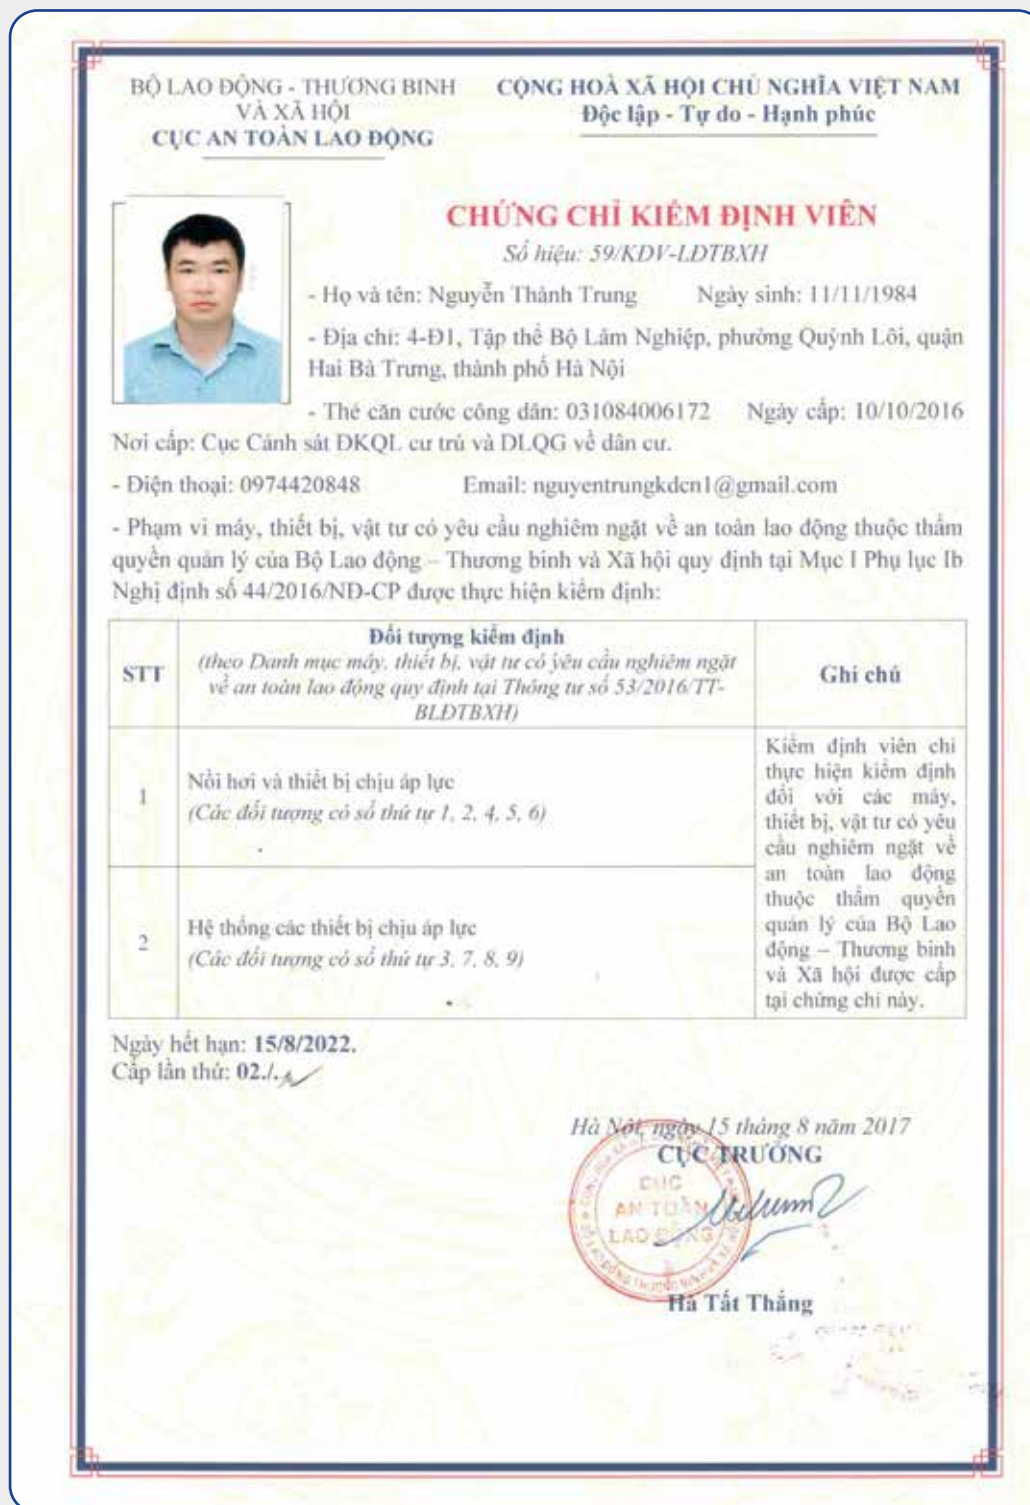 BỘ LAO ĐỘNG - THƯƠNG BINH
VÀ XÃ HỘI
CỤC AN TOÀN LAO ĐỘNG
CỘNG HOÀ XÃ HỘI CHỦ NGHĨA VIỆT NAM
Độc lập - Tự do - Hạnh phúc
CHỨNG CHỈ KIỂM ĐỊNH VIÊN
Số hiệu: 59/KDV-LĐTBXH
- Họ và tên: Nguyễn Thành Trung Ngày sinh: 11/11/1984
- Địa chỉ: 4-Đ1, Tập thể Bộ Lâm Nghiệp, phường Quỳnh Lôi, quận
Hai Bà Trưng, thành phố Hà Nội
- Thẻ căn cước công dân: 031084006172 Ngày cấp: 10/10/2016
Nơi cấp: Cục Cảnh sát ĐKQL cư trú và DLQG về dân cư.
- Điện thoại: 0974420848 Email: nguyentrungkdcn1@gmail.com
- Phạm vi máy, thiết bị, vật tư có yêu cầu nghiêm ngặt về an toàn lao động thuộc thẩm
quyền quản lý của Bộ Lao động – Thương binh và Xã hội quy định tại Mục I Phụ lục Ib
Nghị định số 44/2016/NĐ-CP được thực hiện kiểm định:
STT
Đối tượng kiểm định
(theo Danh mục máy, thiết bị, vật tư có yêu cầu nghiêm ngặt
về an toàn lao động quy định tại Thông tư số 53/2016/TT-
BLĐTBXH)
Ghi chú
1
Nồi hơi và thiết bị chịu áp lực
(Các đối tượng có số thứ tự 1, 2, 4, 5, 6)
2
Hệ thống các thiết bị chịu áp lực
(Các đối tượng có số thứ tự 3, 7, 8, 9)
Kiểm định viên chỉ
thực hiện kiểm định
đối với các máy,
thiết bị, vật tư có yêu
cầu nghiêm ngặt về
an toàn lao động
thuộc thẩm quyền
quản lý của Bộ Lao
động – Thương binh
và Xã hội được cấp
tại chứng chỉ này.
Ngày hết hạn: 15/8/2022.
Cấp lần thứ: 02./.
Hà Nội, ngày 15 tháng 8 năm 2017
CỤC TRƯỞNG
CỤC
AN TOÀN
LAO ĐỘNG
Hà Tất Thắng